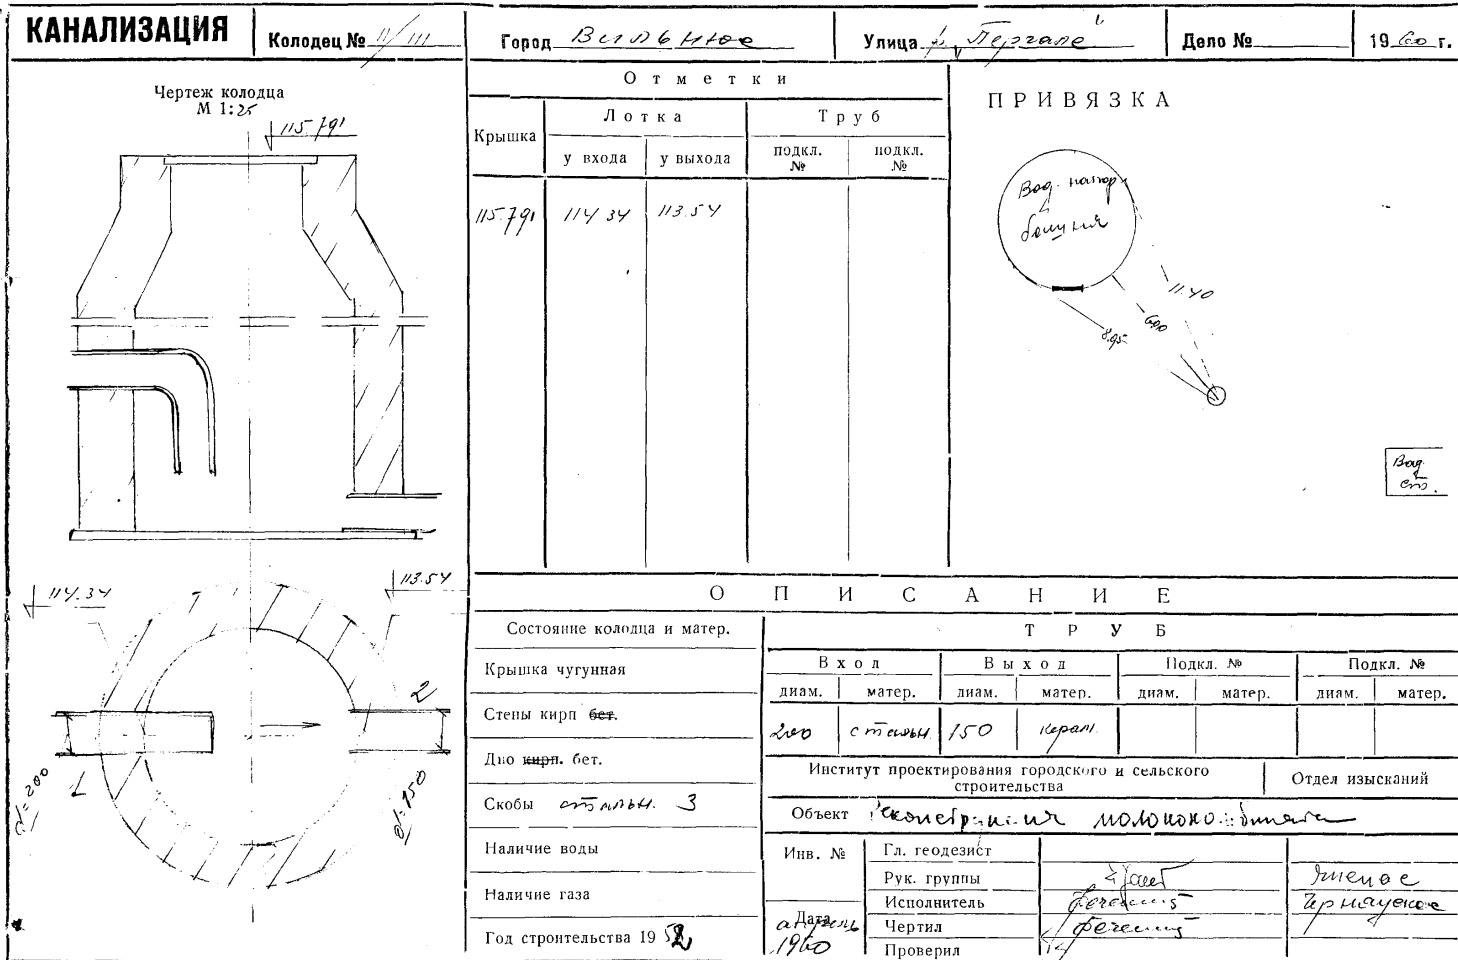 КАНАЛИЗАЦИЯ Колодец № 11/III Город Вильнюс Улица "Пергале" Дело № 1960 г.
Чертеж колодца
М 1:25
115.791
114.34
113.54
2
1
d=200
d=150
Отметки
Крышка Лотка Труб
у входа у выхода подкл. № подкл. №
115.791 114 34 113.54
ПРИВЯЗКА
Вод. напор
башня
11.40
600
8.95
Вод.
ОПИСАНИЕ
Состояние колодца и матер.
Крышка чугунная
Стены кирп бет.
Дно кирп. бет.
Скобы стальн. 3
Наличие воды
Наличие газа
Год строительства 19
ТРУБ
Вход Выход Подкл. № Подкл. №
диам. матер. диам. матер. диам. матер. диам. матер.
200 стальн. 150 керам.
Институт проектирования городского и сельского строительства Отдел изысканий
Объект Реконструкция молококомбината
Инв. №
Гл. геодезист
Рук. группы
Исполнитель
Чертил
Проверил
Дата
апрель
1960